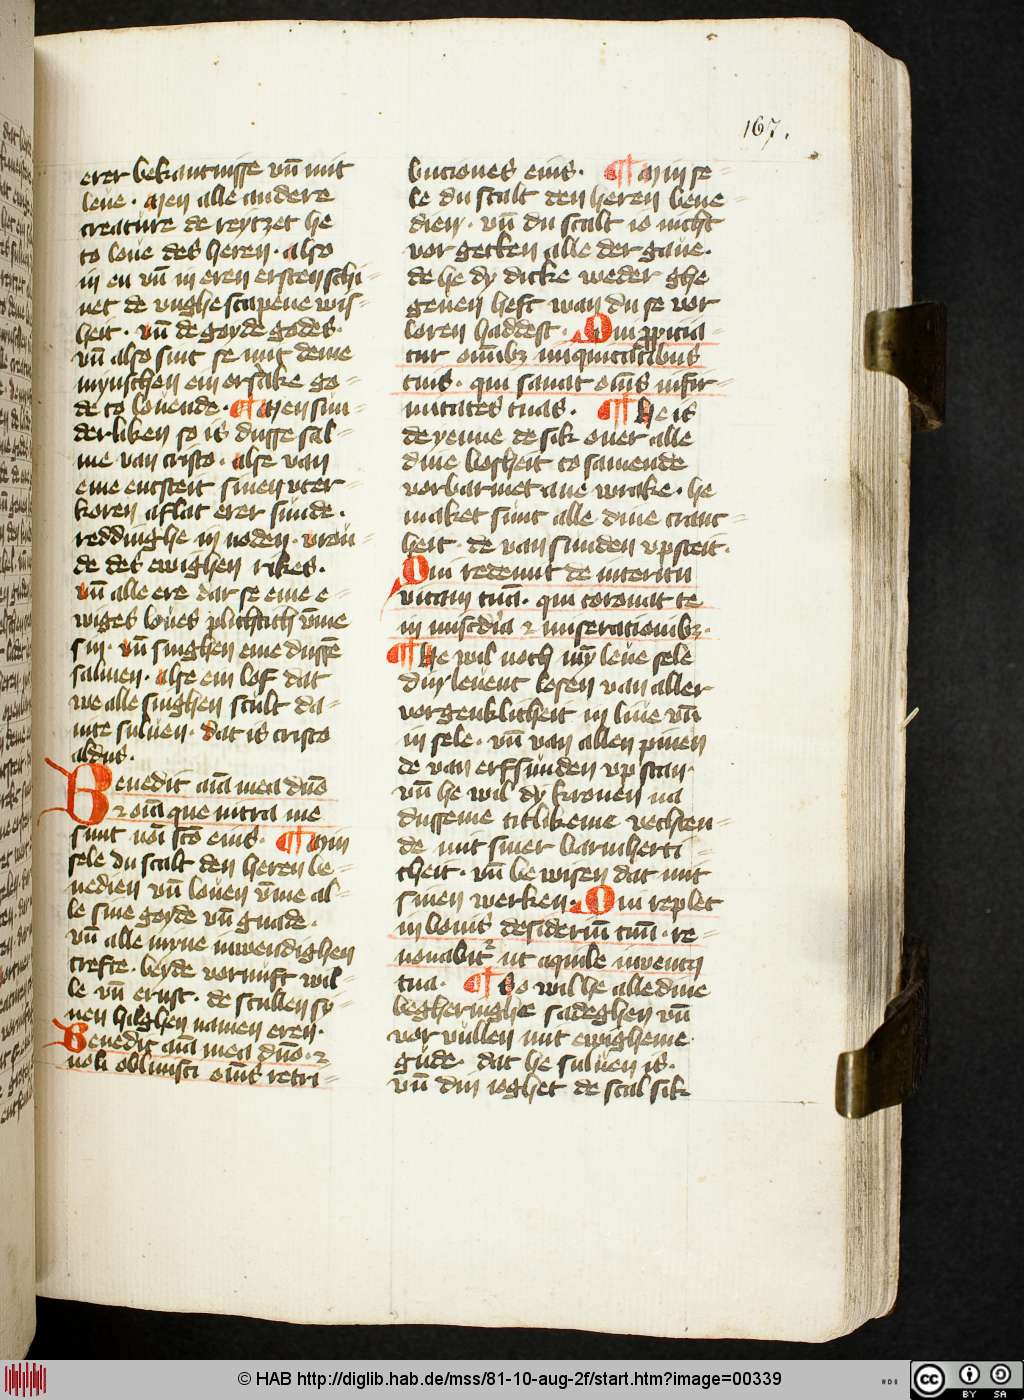 167.
erer bekantnisse vn̄ mit
leue · Men alle andere
creatúre de reytzet he
to loue des heren · also
in en vn̄ in eren ersten schi=
net de vnghescapene wis=
heit · vn̄ de goyde godes·
vn̄ also sint se mit deme
mynschen ein orsake go=
de to louende · ¶ Men sun=
derliken so is dusse sal=
me van cristo · alse van
eme entsteit sinen vter=
koren aflat erer súnde ·
reddinghe in noden · vröu=
de des ewighen rikes ·
vn̄ alle ere dar se eme e=
wiges loues plichtich v̄me
sin · vn̄ singhen eme dussē
salmen · alse ein lof dat
we alle singhen scult da=
mte suluen · dat is cristo
aldus ·
Benedic aīa mea dn̄o
⁊ oīa que intra me
sunt noī scō eius · ¶ Min
sele du scalt den heren be=
nedien vn̄ louen v̄me al=
le sine goyde vn̄ gnade ·
vn̄ alle myne inwendighen
crefte · beyde vornúft wil=
le vn̄ ernst · de scullen sy=
nen hilghen namen eren ·
Benedic aīa mea dn̄o · ⁊
noli obliuisci om̄s retri=
buciones eius · ¶ Min se=
le du scalt den heren bene=
dien · vn̄ du scalt io nicht
vor getten alle der gaue ·
de he dy dicke weder ghe
geuen heft wan du se vor
loren haddest · Qui ꝓpicia=
tur omībꝫ iniquitatibus
tuis · qui sanat om̄s infir=
mitates tuas · ¶ He is
de yenne de sik ouer alle
dine bosheit to samende
vorbarmet ane wrake · he
maket sunt alle dine cranc=
heit · de van sunden vpsteit ·
Qui redemit de interitu
vitam tuā · qui coronat te
in mīscdīa ⁊ miserationibꝫ ·
¶ He wil noch mȳ leue sele
din leuent losen van aller
vorgenklicheit in liue vn̄
in sele · vn̄ van allen pinen
de van erfsúnden vp stan ·
vn̄ he wil dy kronen na
dusseme titlikeme vechten=
de mit siner barmherti=
cheit · vn̄ be wisen dat mit
sinen werken · Qui replet
in bonis desideriū tuū · re=
nouabit² ut aquile iuuentꝫ
tua · ¶ So wil he alle dine
begheringhe sadeghen vn̄
vor vúllen mit ewigheme
gude · dat he suluen is ·
vn̄ din ioghet de scal sik
© HAB http://diglib.hab.de/mss/81-10-aug-2f/start.htm?image=00339
BY SA